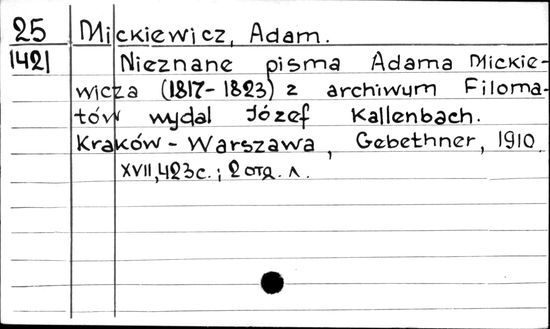 25 Mickiewicz, Adam.
1421 Nieznane pisma Adama Mickie-
wicza (1817-1823) z archiwum Filoma-
tów wydal Józef Kallenbach.
Kraków - Warszawa, Gebethner, 1910.
XVII, 423 с.; 2 отд. л.